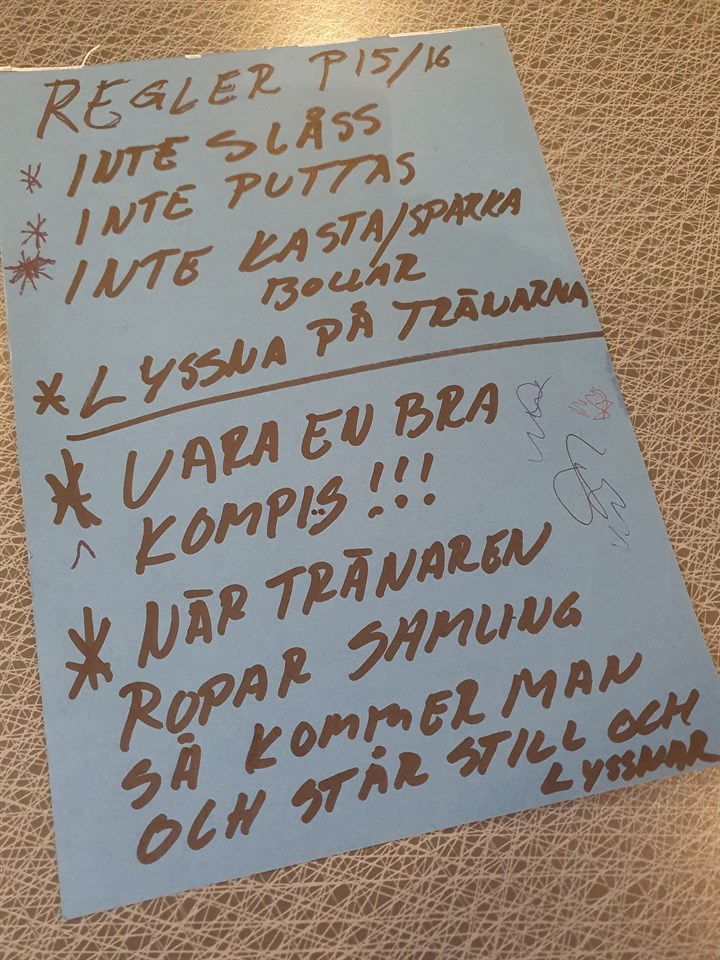 REGLER P15/16
* INTE SLÅSS
* INTE PUTTAS
* INTE KASTA/SPARKA
BOLLAR
* LYSSNA PÅ TRÄNARNA
* VARA EN BRA
KOMPIS!!!
* NÄR TRÄNAREN
ROPAR SAMLING
SÅ KOMMER MAN
OCH STÅR STILL OCH
LYSSNAR